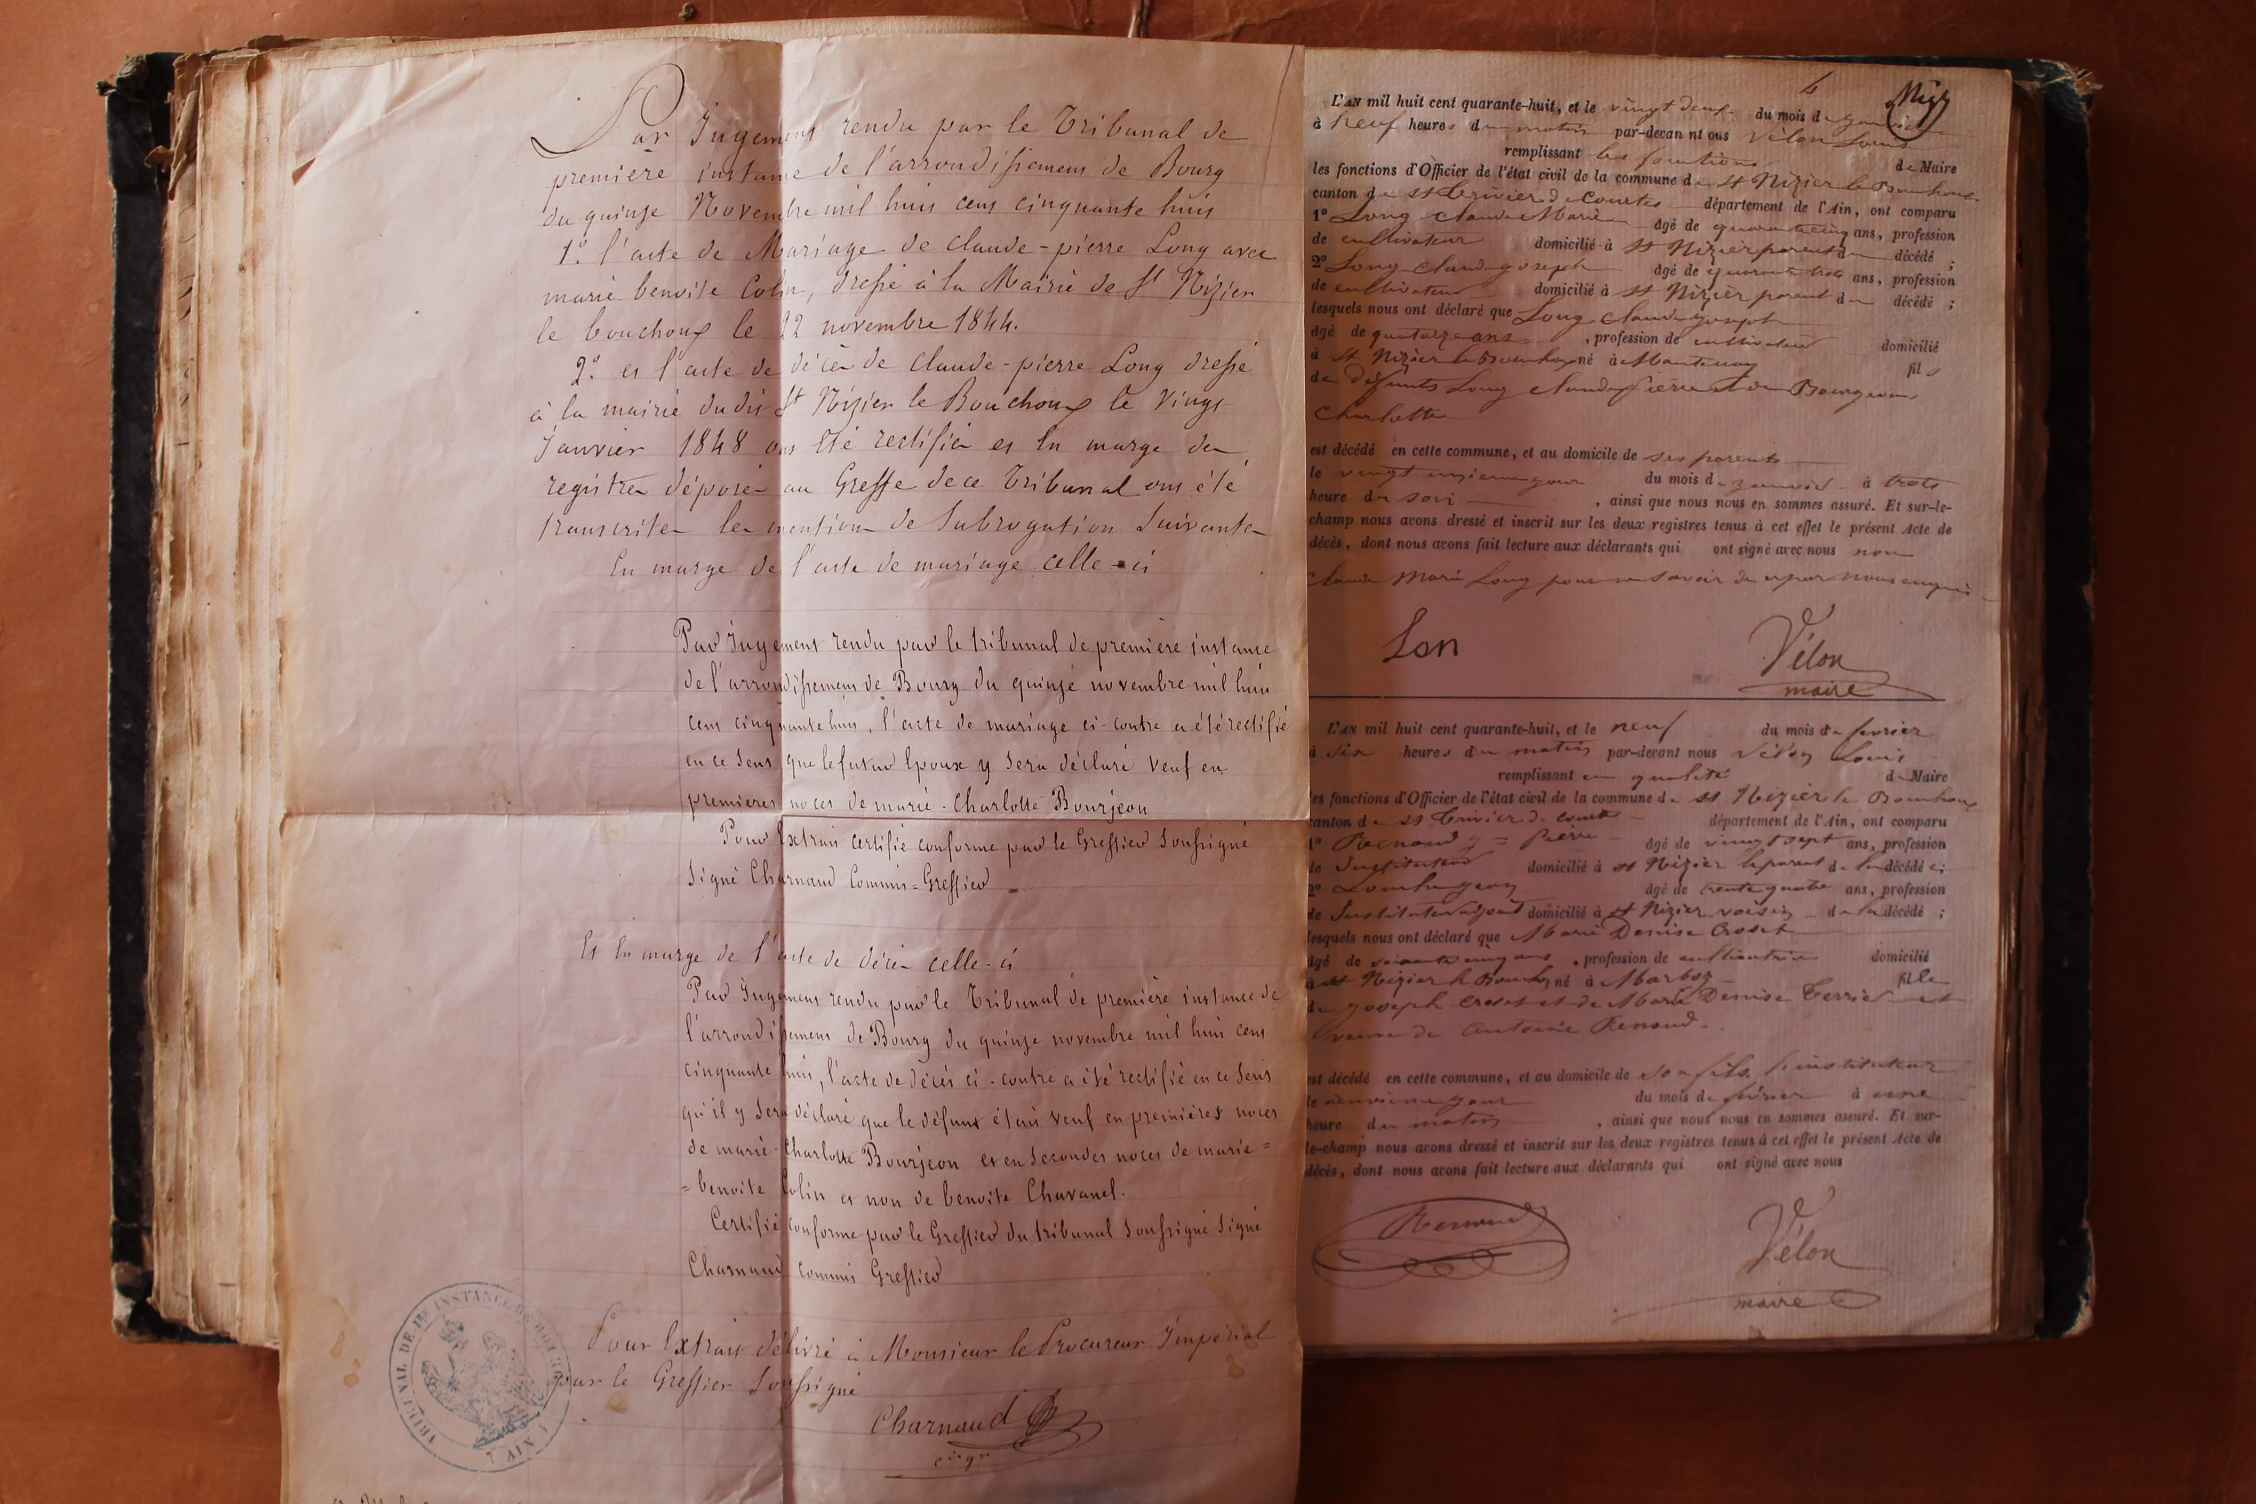 Par Jugement rendu par le Tribunal de
première instance de l'arrondissement de Bourg
du quinze Novembre mil huit cent cinquante huit
1.° l'acte de Mariage de claude-pierre Long avec
marie benoite Colin, dressé à la Mairie de St Nizier
le bouchoux le 22 novembre 1844.
2.° et l'acte de décès de claude-pierre Long dressé
à la mairie dudit St Nizier le Bouchoux le Vingt
Janvier 1848 ont été rectifiés et en marge des
registres déposés au Greffe de ce Tribunal ont été
transcrites les mentions de Subrogation Suivantes
En marge de l'acte de mariage celle-ci
Par Jugement rendu par le tribunal de première instance
de l'arrondissement de Bourg du quinze novembre mil huit
cent cinquante huit, l'acte de mariage ci-contre a été rectifié
en ce sens que le futur époux y sera déclaré veuf en
premières noces de marie-Charlotte Bourjeon
Pour Extrait certifié conforme par le Greffier Soussigné
Signé Charnaud Commis=Greffier
Et En marge de l'acte de décès celle-ci
Par Jugement rendu par le Tribunal de première instance de
l'arrondissement de Bourg du quinze novembre mil huit cent
cinquante huit, l'acte de décès ci-contre a été rectifié en ce Sens
qu'il y sera déclaré que le défunt était veuf en premières noces
de marie-Charlotte Bourjeon et en Secondes noces de marie=
=benoite Colin et non de benoite Chavanel.
Certifié conforme par le Greffier du tribunal Soussigné Signé
Charnaud commis Greffier
Pour Extrait délivré à Monsieur le Procureur Impérial
par le Greffier Soussigné
Charnaud
TRIBUNAL DE 1RE INSTANCE DE BOURG (AIN)
L'AN mil huit cent quarante-huit, et le vingt deux du mois de janvier
à neuf heures du matin par-devant nous Vélon Louis
remplissant les fonctions de Maire
les fonctions d'Officier de l'état civil de la commune de St Nizier le Bouchoux
canton de St Trivier de Courtes département de l'Ain, ont comparu
1° Long Claude Marie âgé de quarante cinq ans, profession
de cultivateur domicilié à St Nizier parent du décédé ;
2° Long Claude Joseph âgé de quarante trois ans, profession
de cultivateur domicilié à St Nizier parent du décédé ;
lesquels nous ont déclaré que Long Claude Joseph
âgé de quatorze ans, profession de cultivateur domicilié
à St Nizier le Bouchoux né à Mantenay fils
de défunts Long Claude Pierre et de Bourgeon
Charlotte
est décédé en cette commune, et au domicile de ses parents
le vingt unième jour du mois de janvier à trois
heure du soir, ainsi que nous nous en sommes assuré. Et sur-le-
champ nous avons dressé et inscrit sur les deux registres tenus à cet effet le présent Acte de
décès, dont nous avons fait lecture aux déclarants qui ont signé avec nous non
Claude Marie Long pour ne savoir de ce par nous enquis
Lon Vélon
maire
L'AN mil huit cent quarante-huit, et le neuf du mois de février
à six heures du matin par-devant nous Vélon Louis
remplissant en qualité de Maire
les fonctions d'Officier de l'état civil de la commune de St Nizier le Bouchoux
canton de St Trivier de Courtes département de l'Ain, ont comparu
1° Renaud Pierre âgé de vingt sept ans, profession
de Instituteur domicilié à St Nizier parent de la décédée ;
2° âgé de trente quatre ans, profession
de Instituteur adjoint domicilié à St Nizier voisin de la décédé ;
lesquels nous ont déclaré que Marie Denise Croset
âgé de soixante cinq ans, profession de cultivatrice domicilié
à St Nizier le Bouchoux né à Marboz fille
de Joseph Croset et de Marie Denise Terrier et
veuve de Antoine Renaud.
est décédé en cette commune, et au domicile de son fils l'instituteur
le neuvième jour du mois de février à une
heure du matin, ainsi que nous nous en sommes assuré. Et sur-
le-champ nous avons dressé et inscrit sur les deux registres tenus à cet effet le présent Acte de
décès, dont nous avons fait lecture aux déclarants qui ont signé avec nous
Renaud Vélon
maire